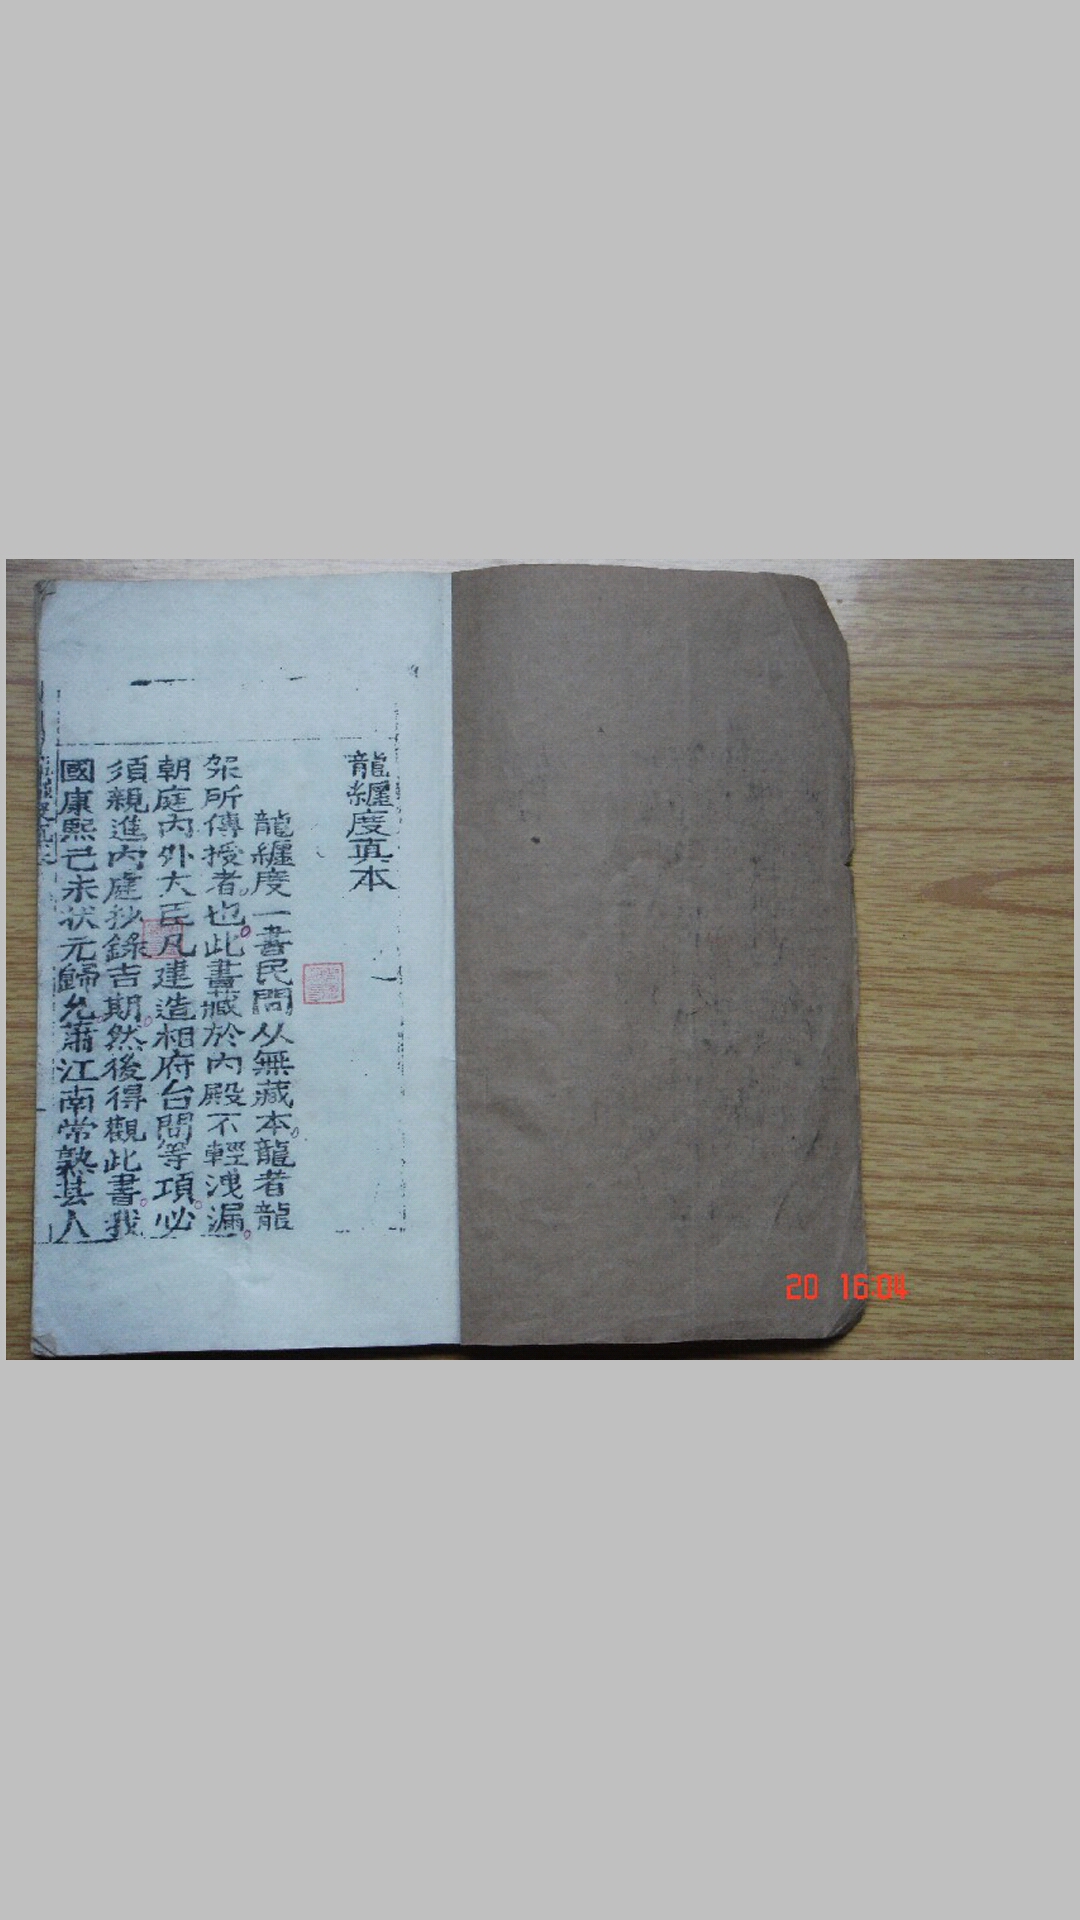 龍纏度真本
龍纏度一書民間从無藏本龍者龍
架所傳授者也此書藏於内殿不輕洩漏
朝庭内外大臣凡建造相府台閣等項必
須親進内庭抄錄吉期然後得觀此書我
國康熙己未状元歸允蕭江南常熟县人
20 16:04